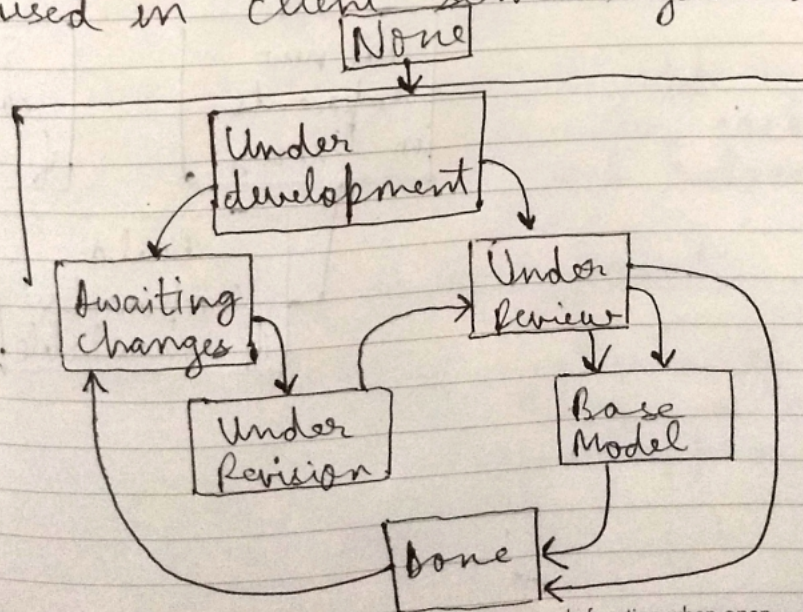 used in client
None
Under
development
Awaiting
changes
Under
Review
Under
Revision
Base
Model
Done